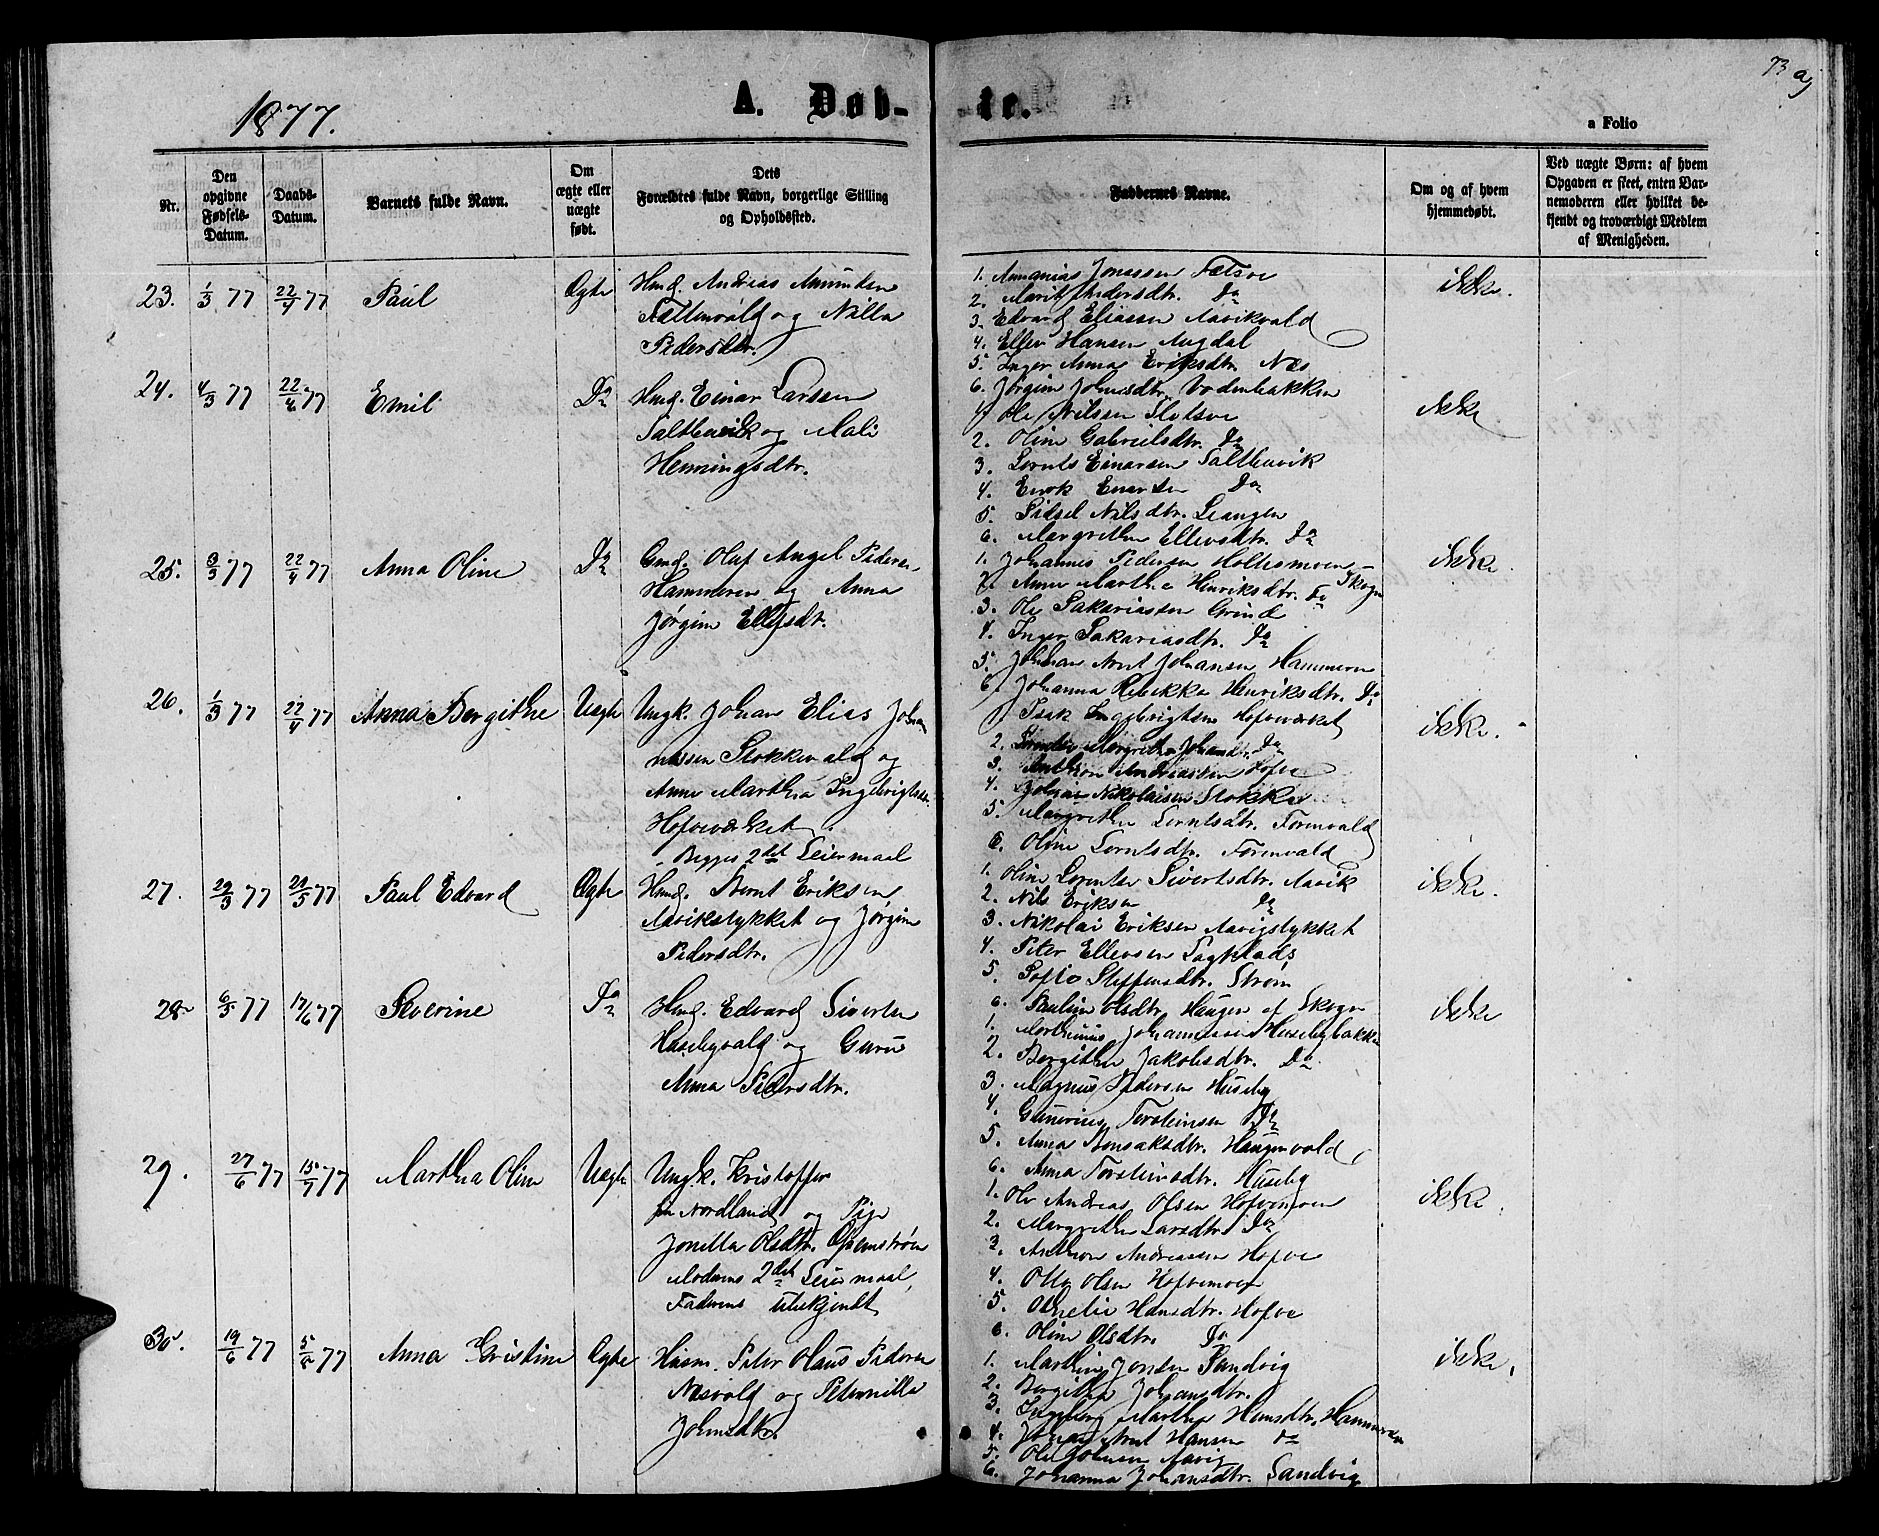 73 a
1877.
A. Døb-
te.
a Folio
Nr.
Den opgivne Fødsels-Datum.
Daabs-Datum.
Barnets fulde Navn.
Om ægte eller uægte født.
Dets
Forældres fulde Navn, borgerlige Stilling
og Opholdssted.
Faddernes Navne.
Om og af hvem
hjemmedøbt.
Ved uægte Børn: af hvem
Opgaven er skeet, enten Bar-
nemoderen eller hvilket be-
kjendt og troværdigt Medlem
af Menigheden.
23. 1/3 77 22/4 77 Paul Ægte
Hmd. Andreas Amundsen
Fættenvald og Nilla
Pedersdtr.
1. Annanias Jonassen Fætsve
2. Marit Andersdtr. Do
3. Edvard Eliassen Aavikvald
4. Ellev Hansen Augdal
5. Inger Anna Eriksdtr. Næs
6. Jørgine Johnsdtr. Vodenbakken
ikke.
24. 4/3 77 22/4 77 Emil Do
Hmd. Einar Larssen
Salthuvik og Mali
Henningsdtr.
1. Ole Nilsen Slotsve
2. Oline Gabrielsdtr. Do
3. Lornts Einarsen Salthuvik
4. Enok Einarsen Do
5. Sidsel Nilsdtr. Leangen
6. Margrethe Ellevsdtr. Do
ikke
25. 3/3 77 22/4 77 Anna Oline Do
Gmd. Olaf Angel Peders.
Hammeren og Anna
Jørgine Ellevsdtr.
1. Johannes Pedersen Holtesmoen -
2. Anne Marthe Henriksdtr. Do Skogn
3. Ole Sakariassen Grind
4. Inger Sakariasdtr. Do
5. Johan Arnt Johansen Hammeren
6. Johanna Rebekka Henriksdtr. Do
ikke.
26. 1/3 77 22/4 77 Anna Bergithe Uægte
Ungk. Johan Elias Johan
nessen Stokkevald og
Anne Martha Ingebrigtsdtr.
Hofveværket.
Begges 2det Leiermaal
1. Isak Ingebrigtsen Hofveværket
2. Margrethe Johansdtr. Do
3. Anthon Andreassen Hofve
4. Johan Nikolaisen Stokke
5. Margrethe Lorntsdtr. Forrenvald
6. Oline Lorntsdtr. Forrenvald
ikke.
27. 29/3 77 20/5 77 Paul Edvard Ægte
Hmd. Bernt Eriksen
Aavikstykket og Jørgine
Pedersdtr.
1. Oline Lorentse Sivertsdtr. Aavik
2. Nils Eriksen Do
3. Nikolai Eriksen Aavigstykket
4. Peter Ellevsen Sagplads
5. Sofie Steffensdtr. Strøm
6. Pauline Olsdtr. Haugen af Skogn
ikke.
28. 6/5 77 17/6 77 Severine Do
Hmd. Edvard Sivertsen
Husebyvald og Guru
Anna Pedersdtr.
1. Marthinus Johannessen Husebybakken
2. Bergithe Jakobsdtr. Do.
3. Magnus Pedersen Huseby
4. Gunerius Torsteinsen Do
5. Anna Bonsaksdtr. Haugenvald
6. Anna Torsteinsdtr. Huseby
ikke
29. 27/6 77 15/7 77 Martha Oline Uægte
Ungk. Kristoffer
fra Nordland og Pige
Jonetta Olsdtr. Opemstrøen
Moderens 2det Leiermaal,
Faderens ubekjendt
1. Ole Andreas Olsen Hofvemoen
2. Margrethe Larsdtr. Do
3. Anthon Andreassen Hofve
4. Otto Olsen Hofvemoen
5. Othelie Hansdtr. Hofve
6. Oline Olsdtr. Do
ikke.
30. 19/6 77 5/8 77 Anna Cristine Ægte
Husm. Peter Olaus Pedersen
Næsvald og Peternilla
Johnsdtr.
1. Marthin Jonsen Sandvig
2. Bergitha Johansdtr.
3. Ingeborg Martha Hansdtr. Hammeren
4. Johan Arnt Hansen Do
5. Ole Johnsen Aavig
6. Johanna Johansdtr. Sandvig
ikke.